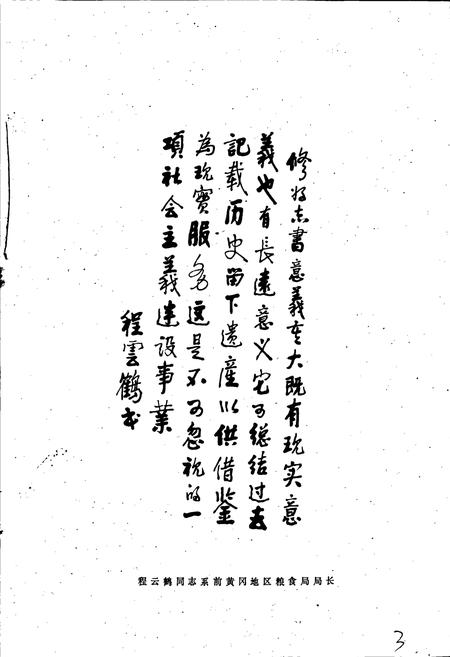 修好志書意義重大既有現实意
義也有長遠意义它可總结过去
記载历史留下遗產以供借鉴
為现實服务這是不可忽視的一
項社会主義建设事業
程雲鶴书
程云鹤同志系前黄冈地区粮食局局长
3